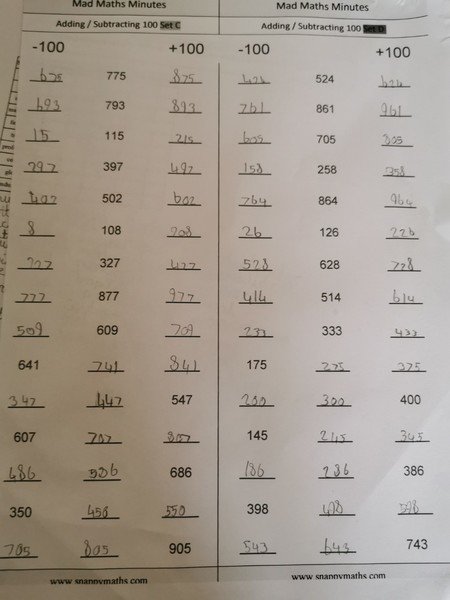 Mad Maths Minutes
Adding / Subtracting 100 Set C
-100 +100
675 775 875
693 793 893
15 115 215
297 397 497
402 502 602
8 108 208
227 327 427
777 877 977
509 609 709
641 741 841
347 447 547
607 707 807
486 586 686
350 450 550
705 805 905
www.snappymaths.com
Mad Maths Minutes
Adding / Subtracting 100 Set D
-100 +100
424 524 624
761 861 961
605 705 805
158 258 358
764 864 964
26 126 226
528 628 728
414 514 614
233 333 433
175 275 375
200 300 400
145 245 345
186 286 386
398 498 598
543 643 743
www.snappymaths.com